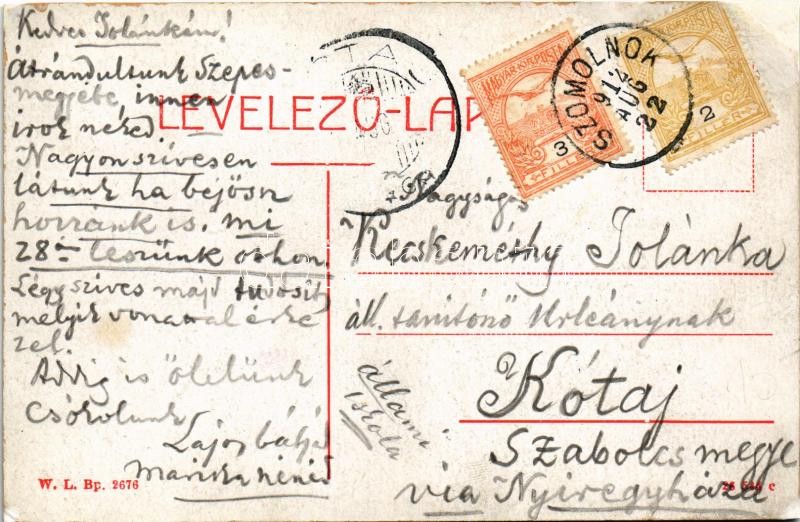 Kedves Jolánkám!
Átrándultunk Szepes-
megyébe, innen
irok neked.
Nagyon szivesen
látunk ha bejösz
hozzánk is. mi
28-án leszünk othon.
Légy szives majd tudosits
melyik vonattal érke
zel.
Addig is ölelünk
csókolunk
Lajos bátyád
Mariska nénéd
LEVELEZŐ-LAP
MAGYAR KIR. POSTA
3
FILLÉR
SZOMOLNOK
912
AUG
22
MAGYAR KIR. POSTA
2
FILLÉR
Nagyságos
Kecskeméthy Jolánka
áll. tanitónő Urleánynak
állami
iskola
Kótaj
Szabolcs megye
via Nyiregyháza
W. L. Bp. 2676